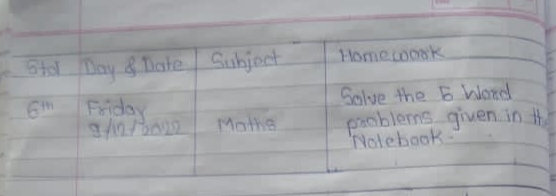 Std Day & Date Subject Homework
6th Friday Solve the 5 Word
9/12/2022 Maths problems given in th
Notebook.